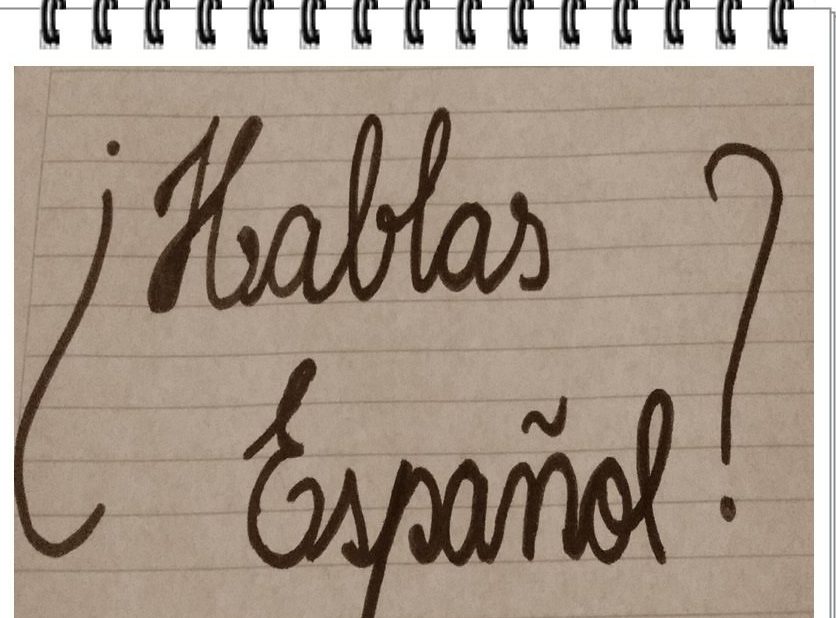 ¿Hablas
Español?